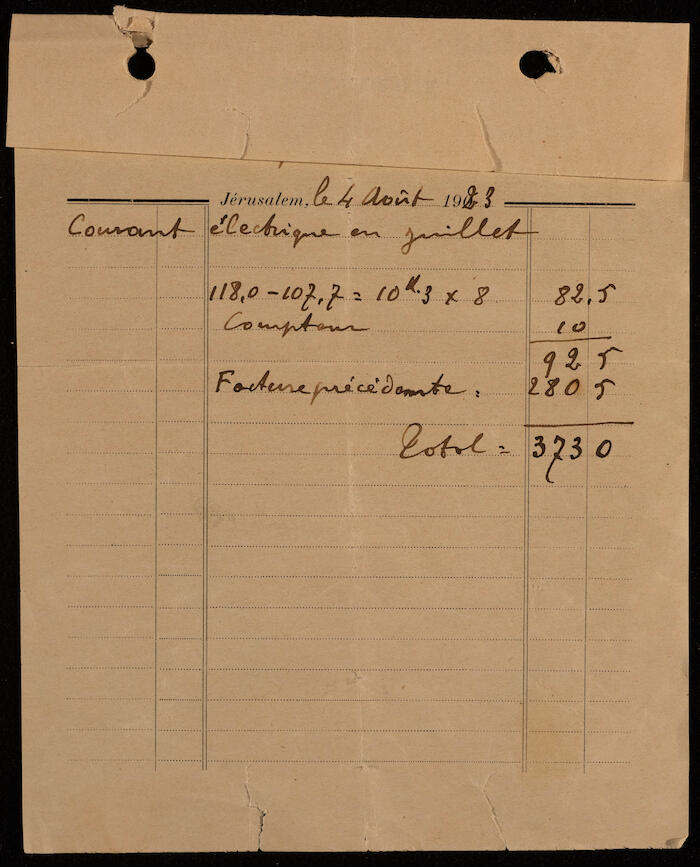 Jérusalem, le 4 Août 1923
Courant électrique en juillet
118,0 - 107,7 = 10 3 x 8 82,5
Compteur 10
92 5
Facture précédante : 280 5
Total = 373 0